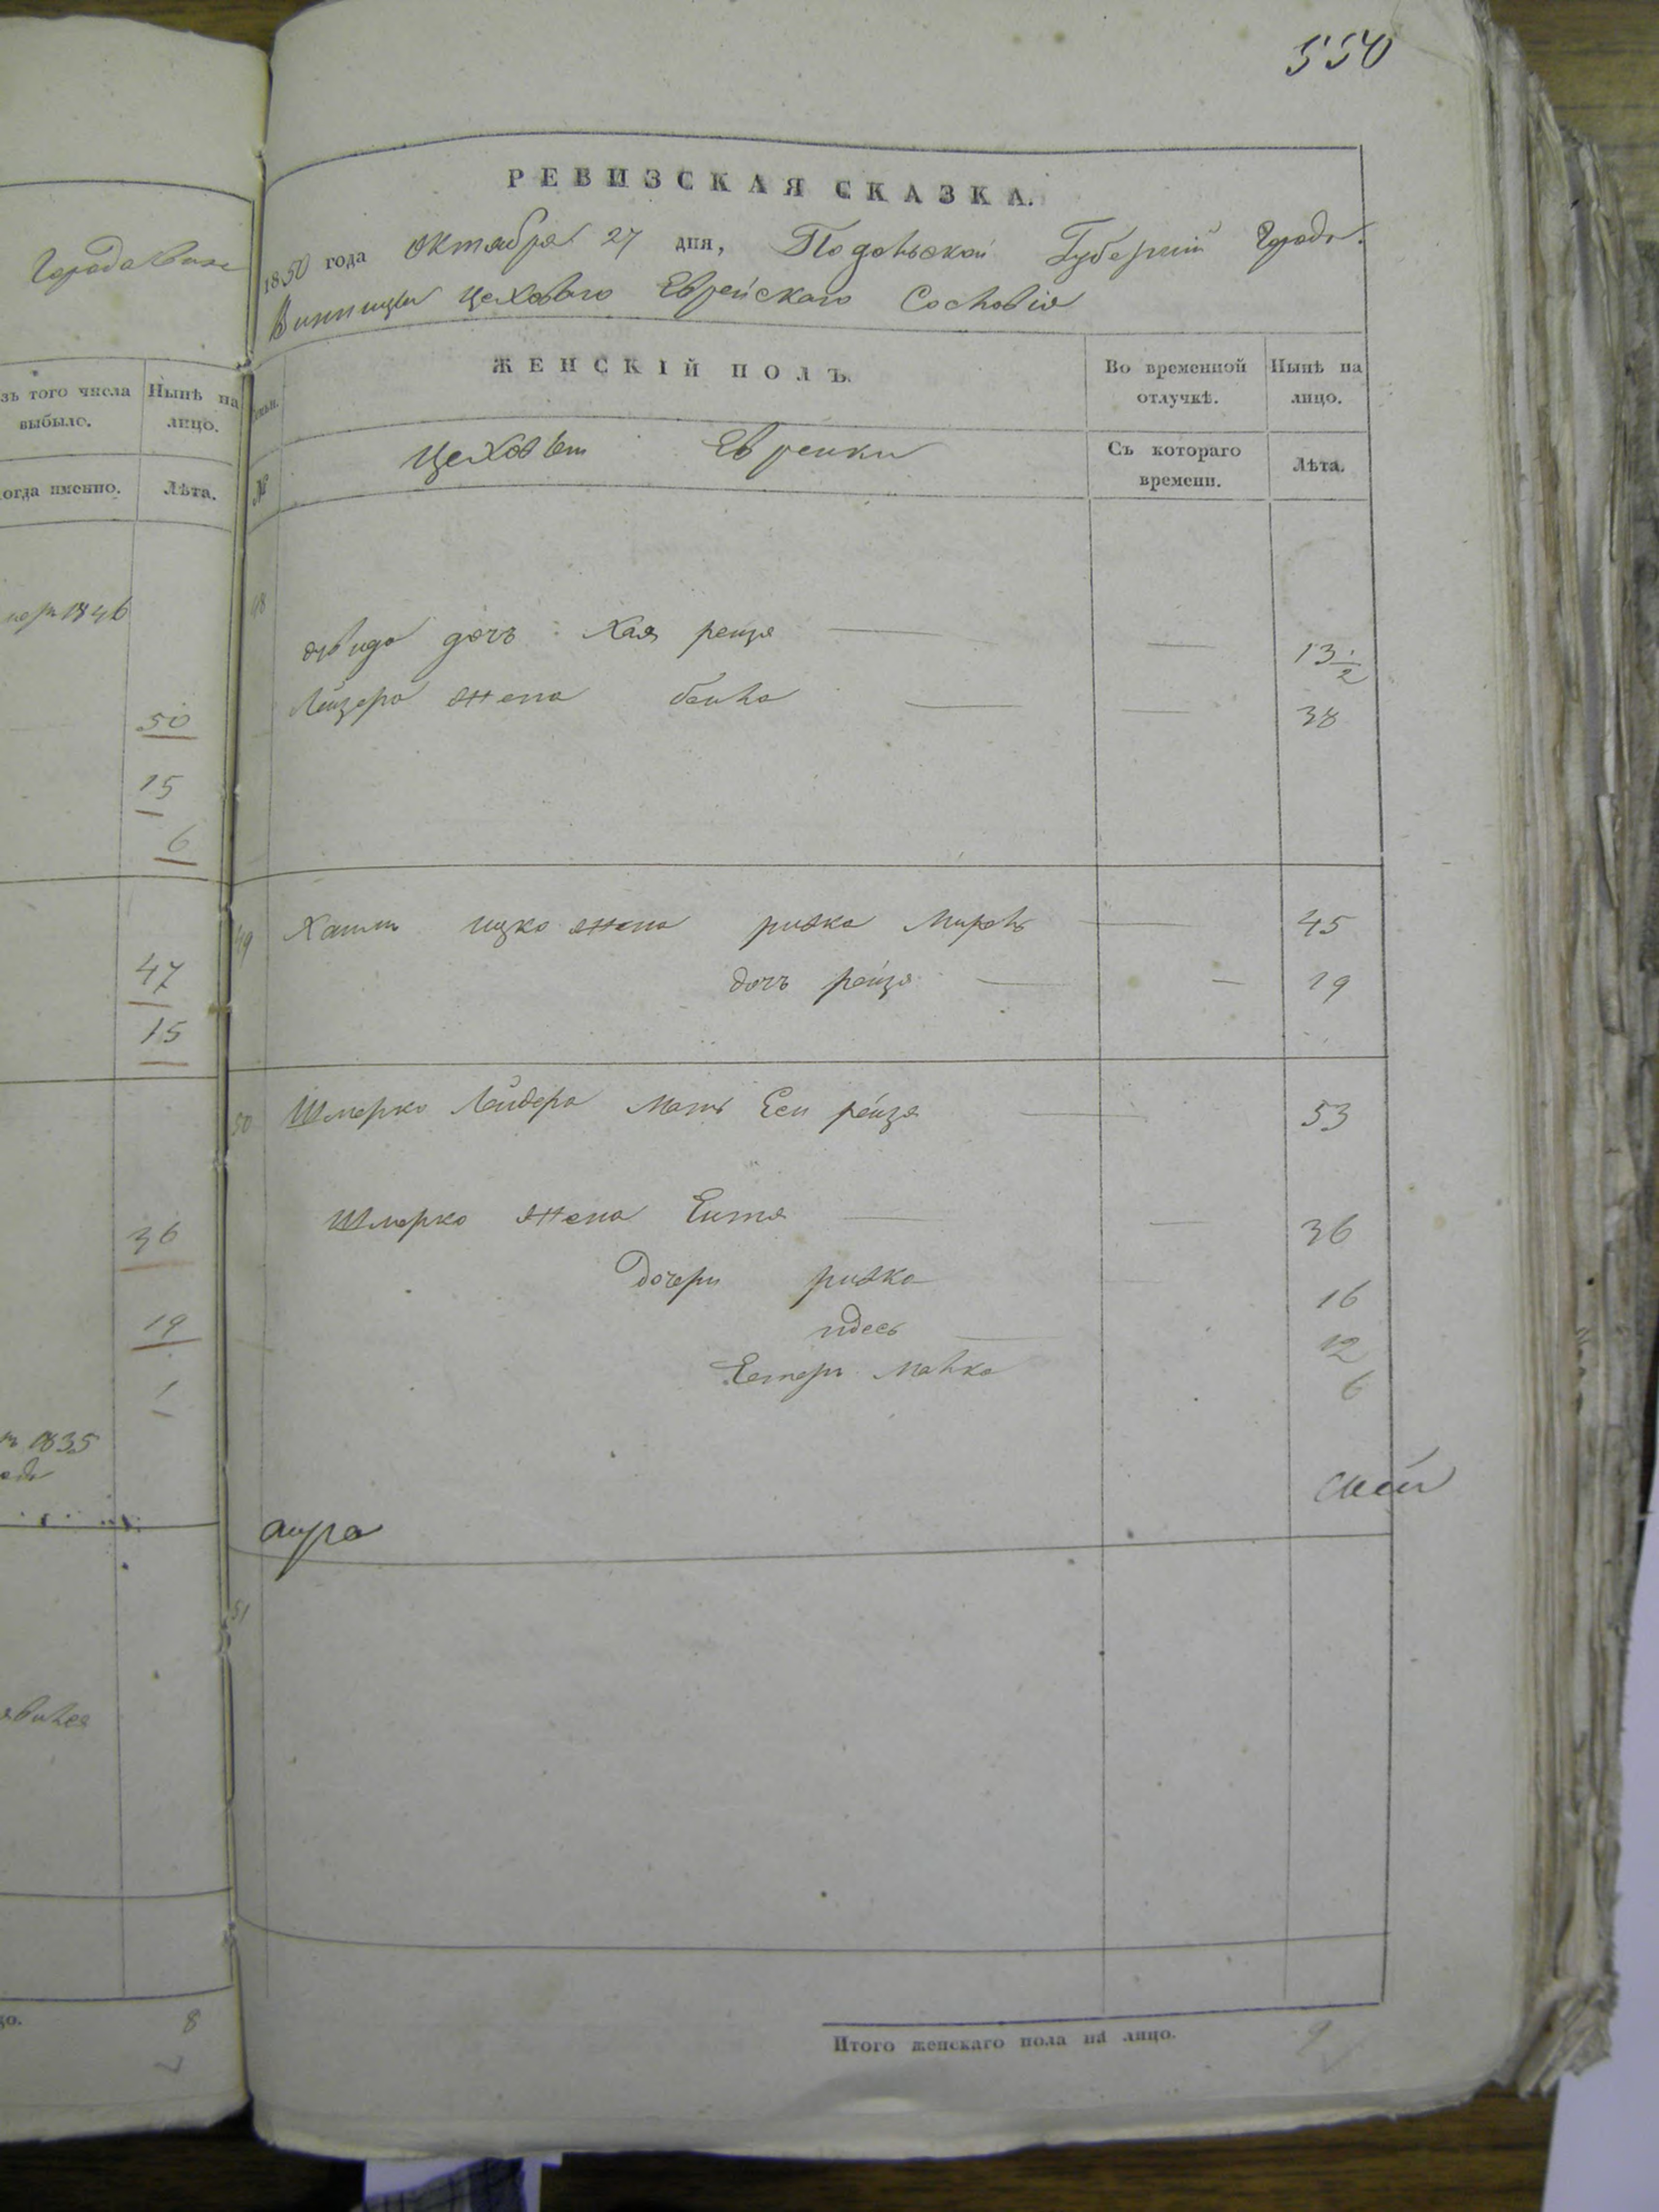 550
Города Вин
РЕВИЗСКАЯ СКАЗКА.
1850 года октября 27 дня, Подольской Губерніи Города
Винницы цеховаго Еврейскаго Сословія
зъ того числа выбыло.
Нынѣ на лицо.
огда именно.
Лѣта.
ЖЕНСКІЙ ПОЛЪ.
Во временной отлучкѣ.
Нынѣ на лицо.
№
Еврейки
Съ котораго времени.
Лѣта.
1846
50
15
6
47
15
36
19
1
1835
8
48
дочь Хая рейзя 13 1/2
Лейзера жена бейла 38
49
Хаим ицко жена ривка 45
дочь рейзя 19
50
Шмерко Мать Еси рейзя 53
Шмерко жена Ентя 36
Дочери ривка 16
идесь 12
Естеръ Малка 6
51
Итого женскаго пола на лицо. 9